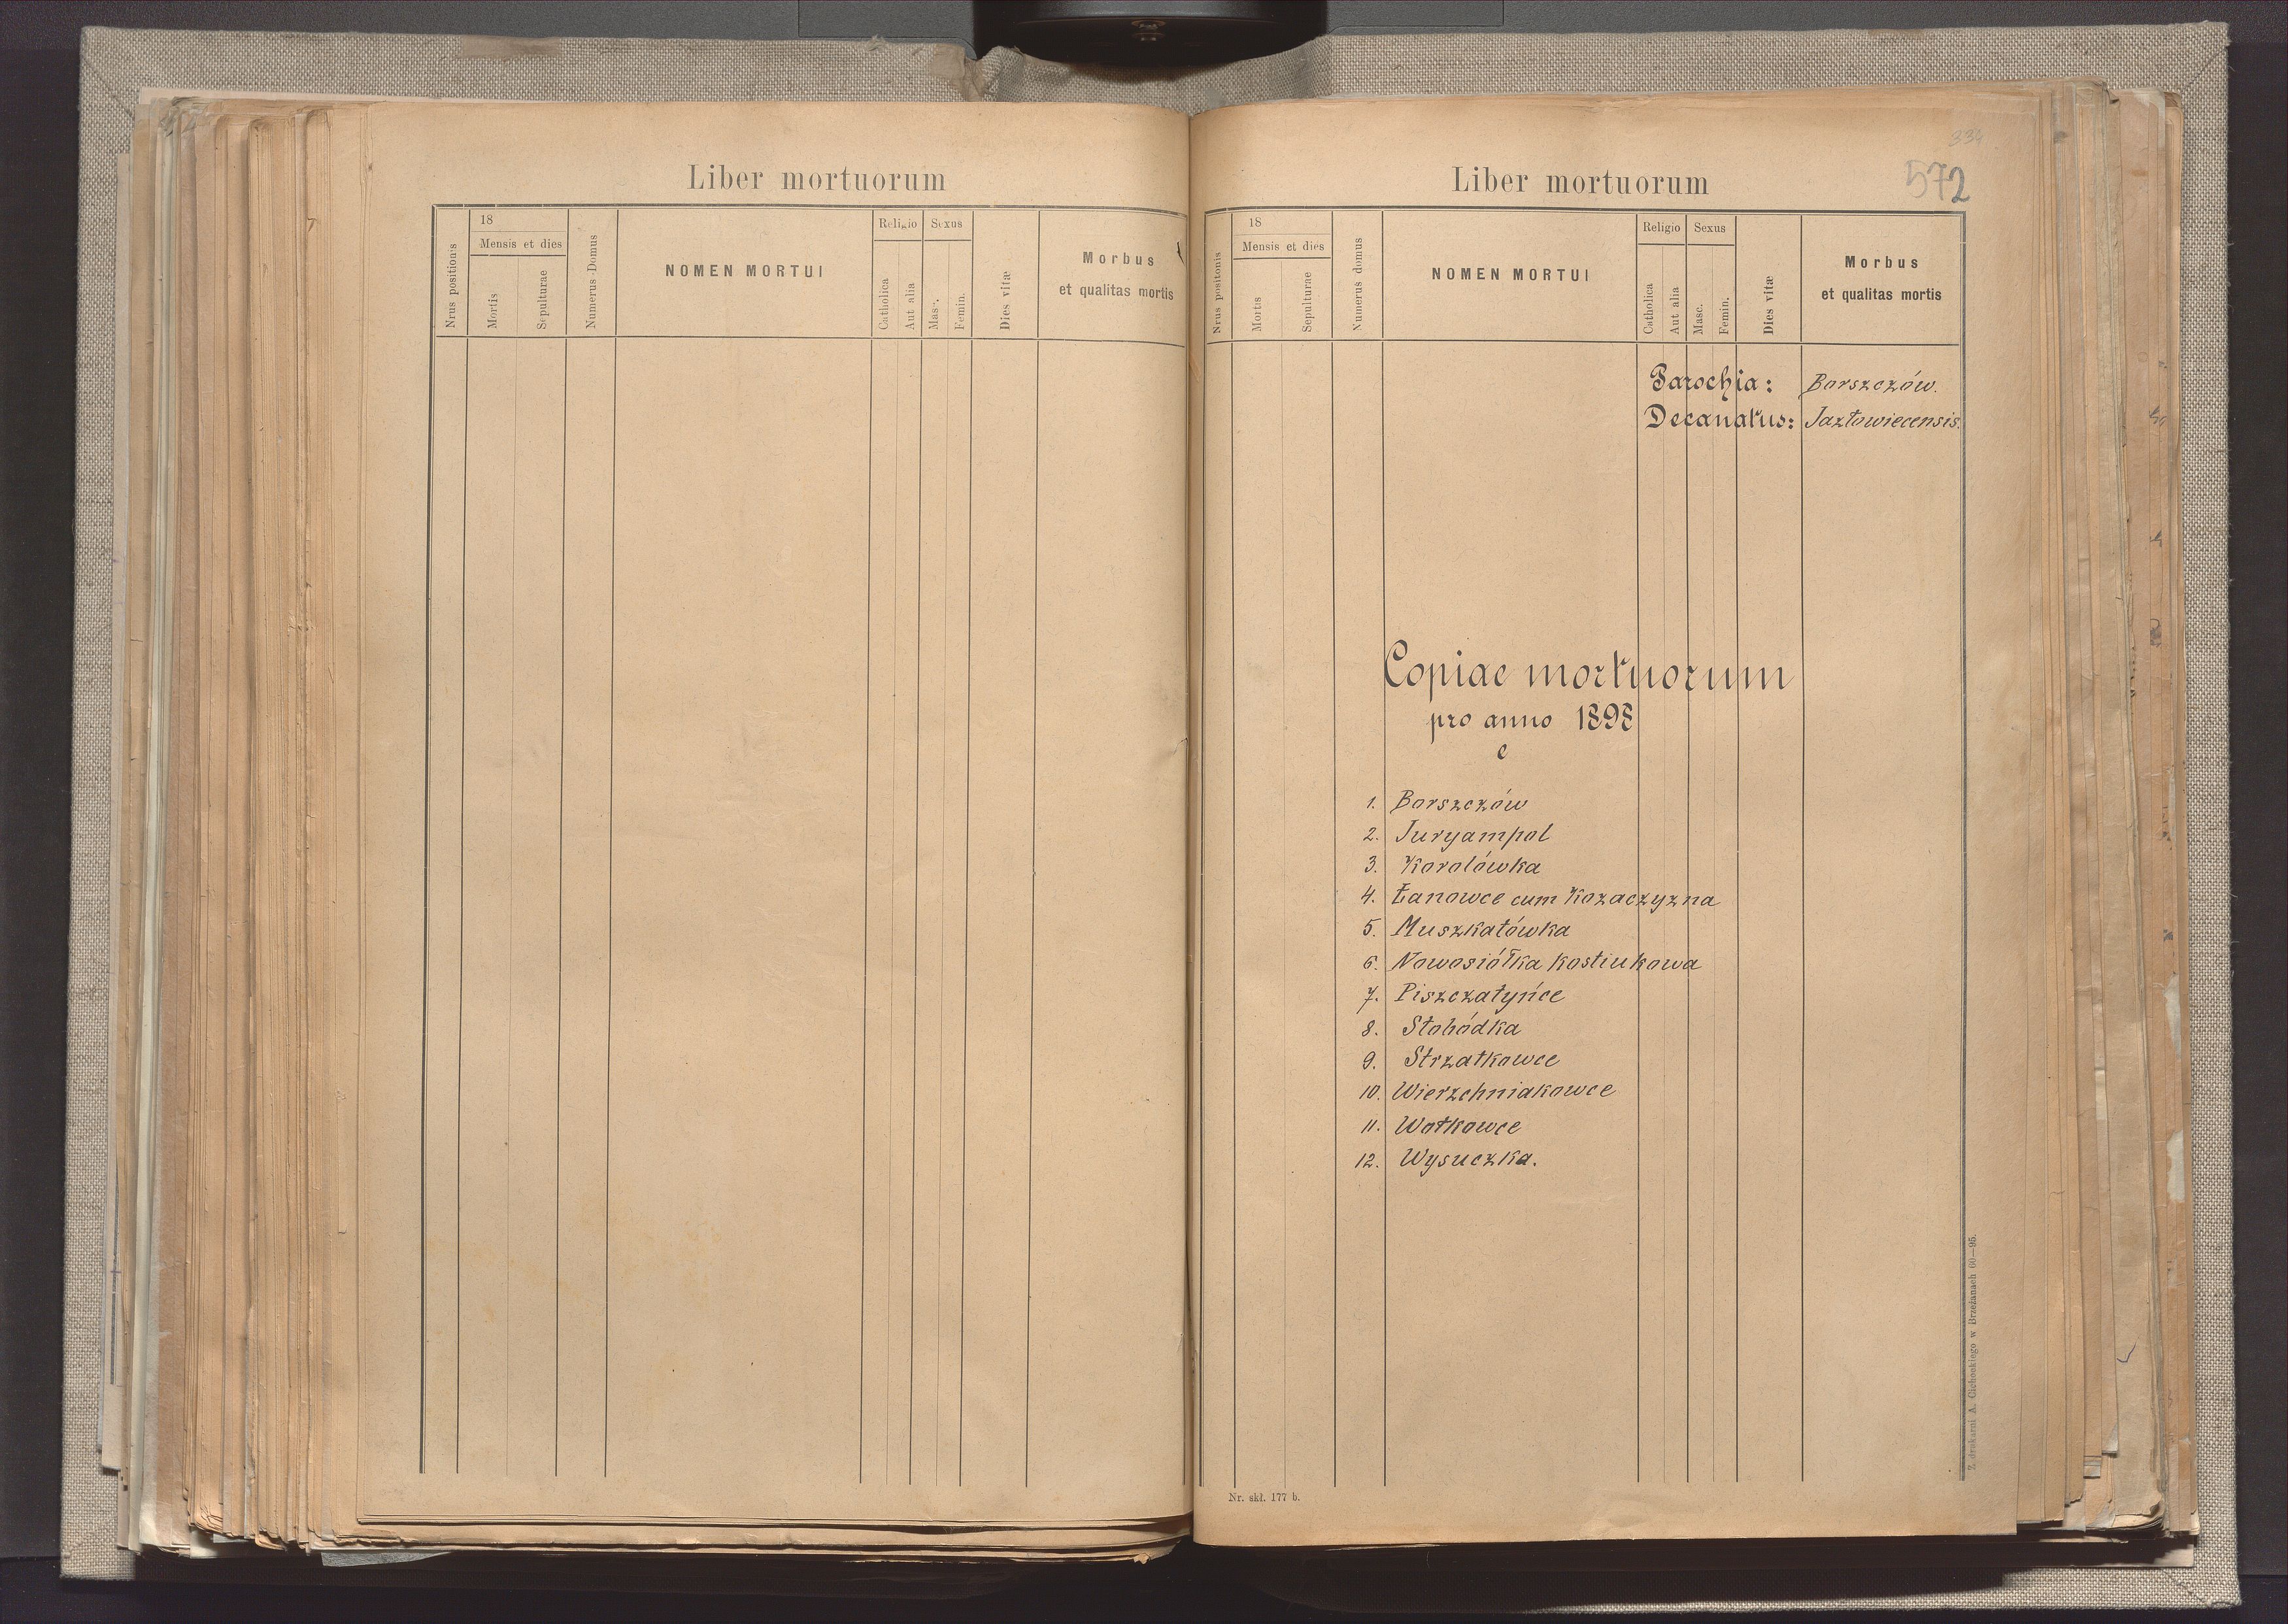 Liber mortuorum
Nrus positionis
18
Mensis et dies
Mortis
Sepulturae
Numerus Domus
NOMEN MORTUI
Religio
Catholica
Aut alia
Sexus
Masc.
Femin.
Dies vitæ
Morbus
et qualitas mortis
572
Liber mortuorum
Nrus positonis
18
Mensis et dies
Mortis
Sepulturae
Numerus domus
NOMEN MORTUI
Religio
Catholica
Aut alia
Sexus
Masc.
Femin.
Dies vitæ
Morbus
et qualitas mortis
Parochia: Borszczów.
Decanatus: Jazłowiecensis.
Copiae mortuorum
pro anno 1898
e
1. Borszczów
2. Juryampol
3. Korolówka
4. Łanowce cum Kozaczyzna
5. Muszkatówka
6. Nowosiółka Kostiukowa
7. Piszczatyńce
8. Słobódka
9. Strzałkowce
10. Wierzchniakowce
11. Wołkowce
12. Wysuczka.
Nr. skł. 177 b.
Z drukarni A. Cichockiego w Brzeżanach 60—95.